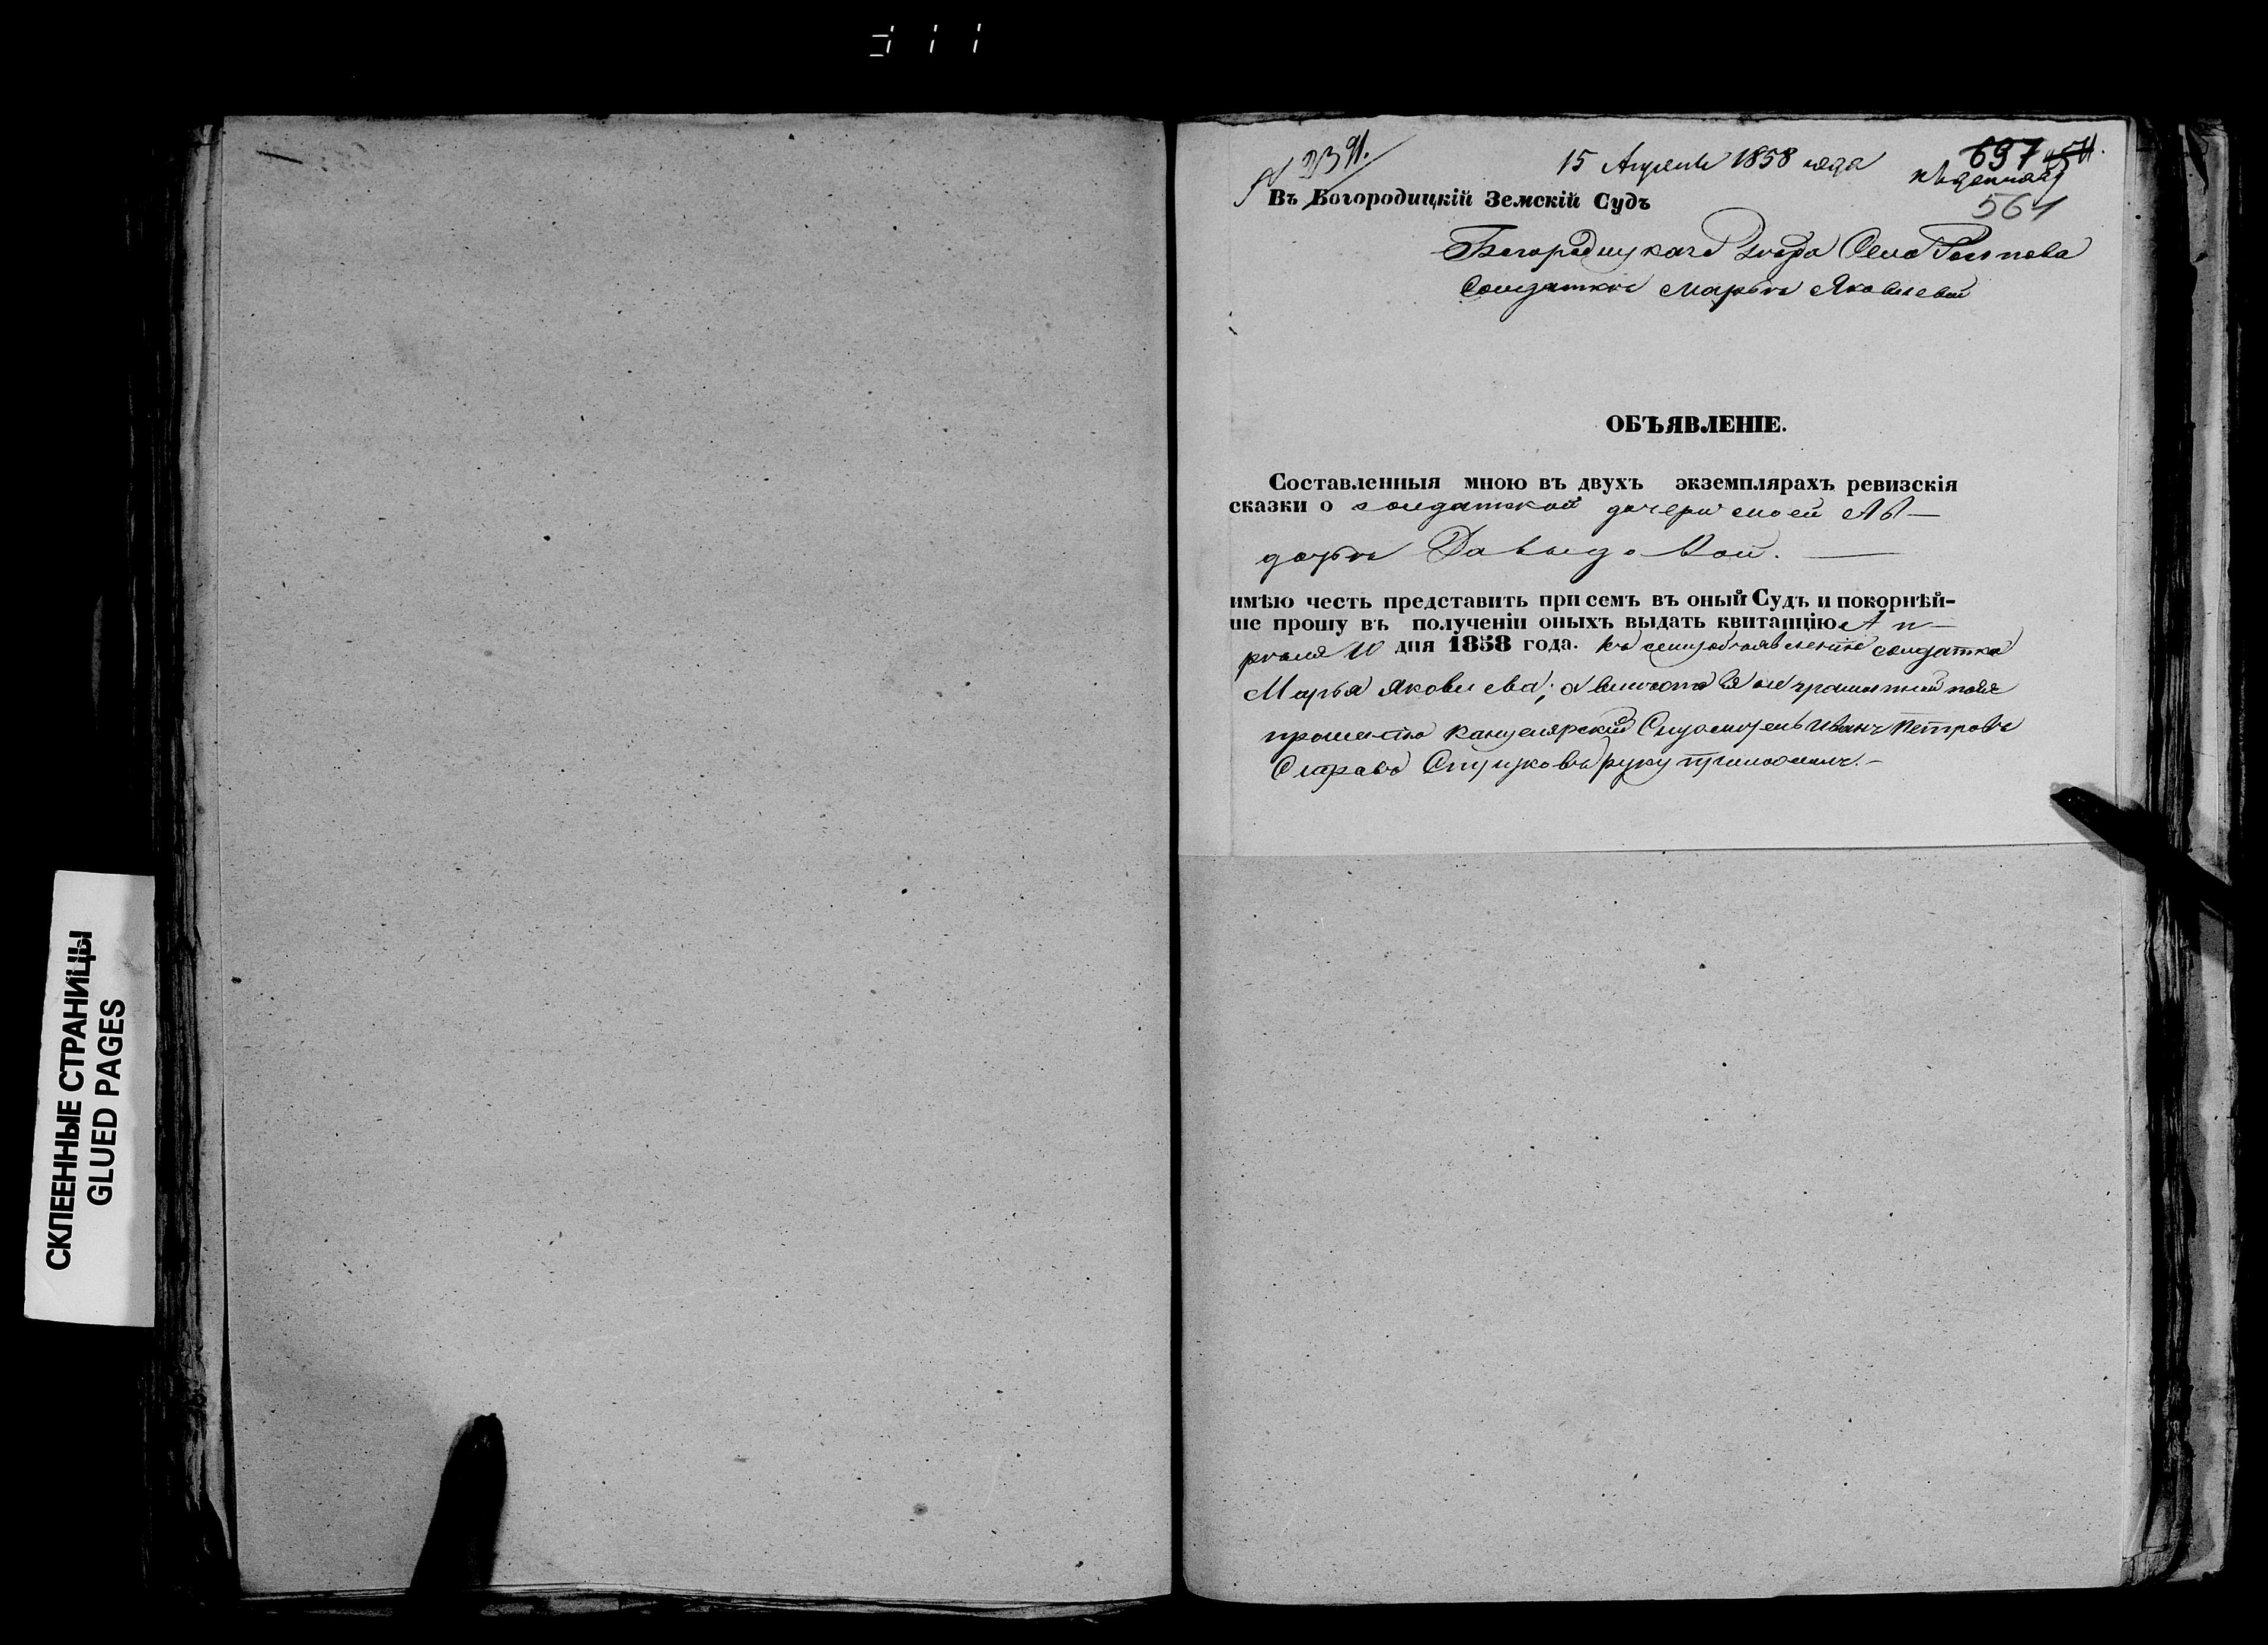 СКЛЕЕННЫЕ СТРАНИЦЫ
GLUED PAGES
№ 2391.
15 Апреля 1858 года
697
561
Въ Богородицкій Земскій Судъ
Богородицкаго Уезда Села
Солдатки Марьи Яковлевой
ОБЪЯВЛЕНІЕ.
Составленныя мною въ двухъ экземплярахъ ревизскія
сказки о солдатской дочери моей Ав-
дотье Давыдовой.
имѣю честь представить при семъ въ оный Судъ и покорнѣй-
ше прошу въ полученіи оныхъ выдать квитанцію Ап-
реля 10 дня 1858 года. Къ сему объявленію солдатка
Марья Яковлева; а вместо ея не грамотной по ея
прошенію Канцелярскій Служитель Иванъ Петровъ
руку приложилъ.